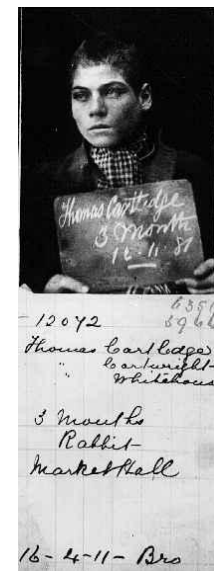 Thomas Cartlidge
3 Month
16 11 81
12072
Thomas Cartledge
" Cartwright
Whitehous
3 Months
Rabbit
Market Hall
16-4-11- Bro